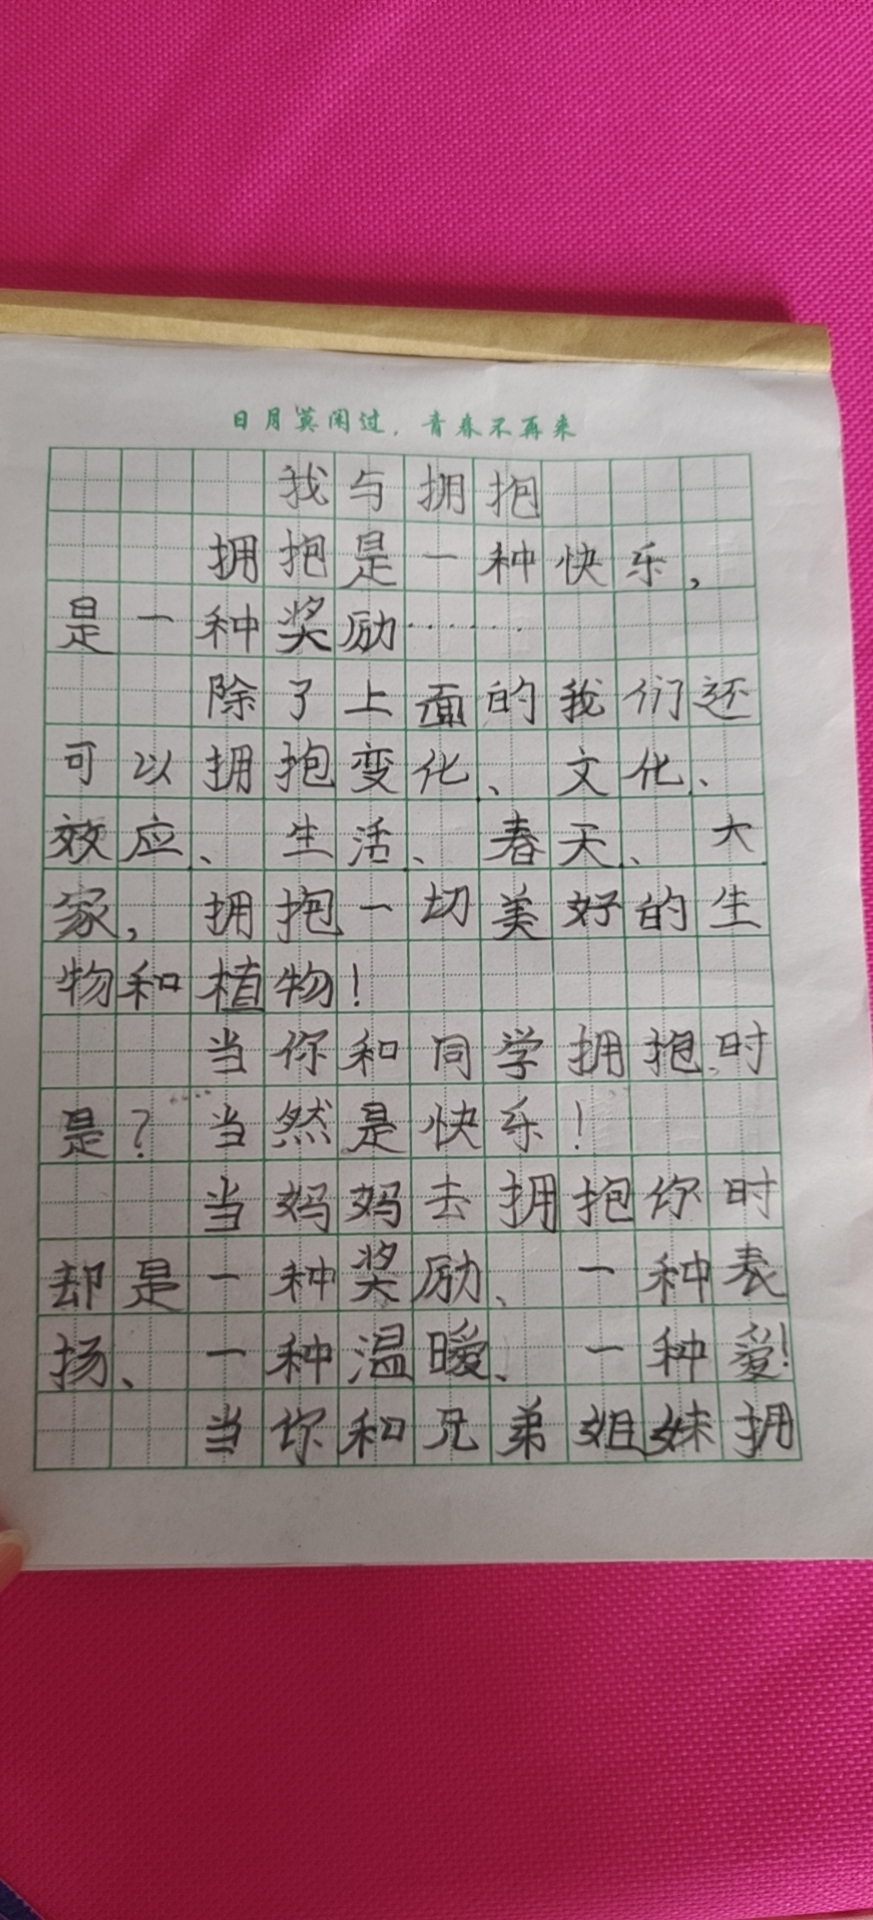 日月莫闲过，青春不再来
我与拥抱
拥抱是一种快乐，
是一种奖励……
除了上面的我们还
可以拥抱变化、文化、
效应、生活、春天、大
家，拥抱一切美好的生
物和植物！
当你和同学拥抱时
是？当然是快乐！
当妈妈去拥抱你时
却是一种奖励、一种表
扬、一种温暖、一种爱！
当你和兄弟姐妹拥